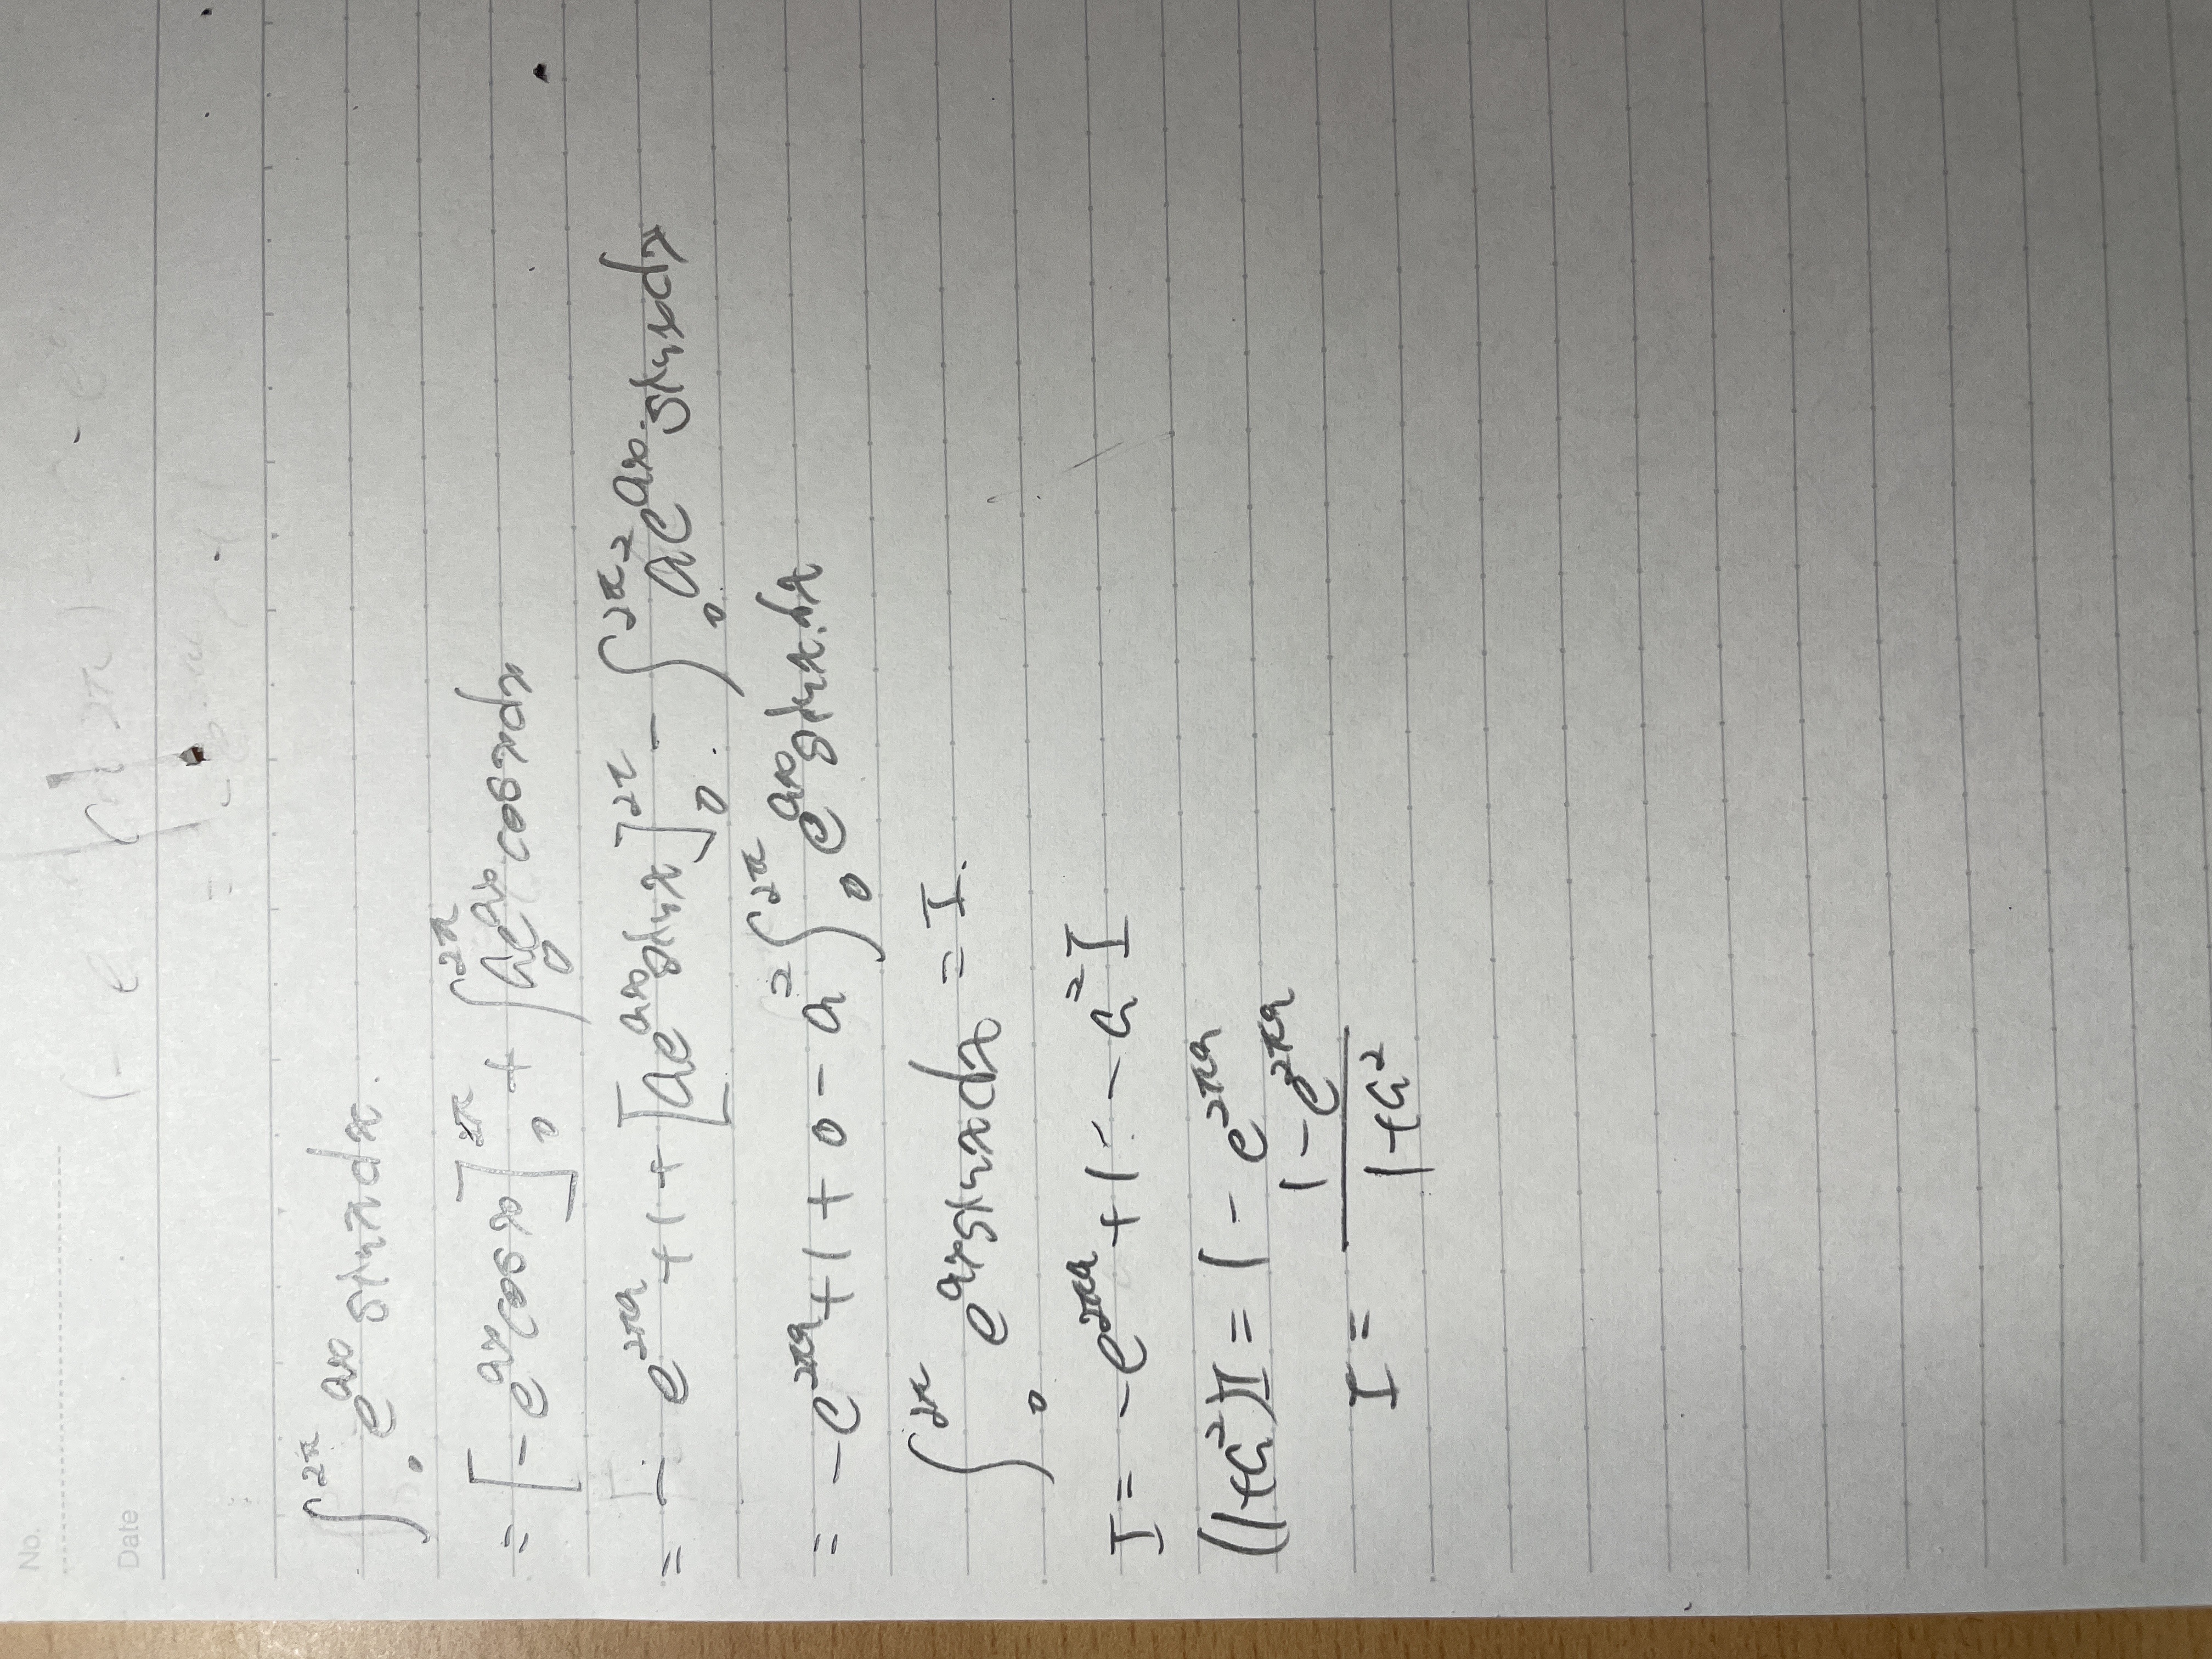 No.
Date
∫₀^{2π} e^{ax} sinx dx.
= [-e^{ax} cosx]₀^{2π} + ∫₀^{2π} ae^{ax} cosx dx
= - e^{2πa} + 1 + [ae^{ax} sinx]₀^{2π} - ∫₀^{2π} a²e^{ax} sinx dx
= -e^{2πa} + 1 + 0 - a² ∫₀^{2π} e^{ax} sinx dx
∫₀^{2π} e^{ax} sinx dx = I.
I = -e^{2πa} + 1 - a² I
(1+a²)I = 1 - e^{2πa}
I = \frac{1 - e^{2πa}}{1+a²}